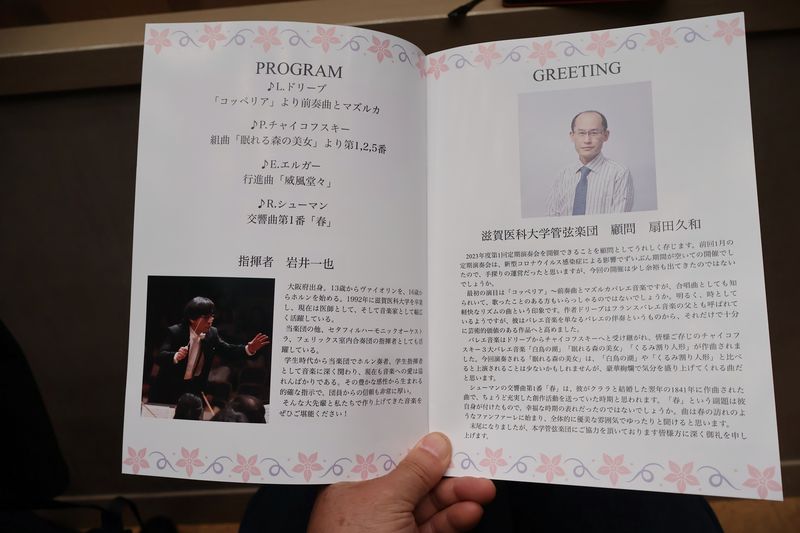 PROGRAM
♪L.ドリーブ
「コッペリア」より前奏曲とマズルカ
♪P.チャイコフスキー
組曲「眠れる森の美女」より第1,2,5番
♪E.エルガー
行進曲「威風堂々」
♪R.シューマン
交響曲第1番「春」
指揮者 岩井一也
大阪府出身。13歳からヴァイオリンを、16歳か
らホルンを始める。1992年に滋賀医科大学を卒業
し、現在は医師として、そして音楽家として幅広
く活躍している。
当楽団の他、セタフィルハーモニックオーケスト
ラ、フェリックス室内合奏団の指揮者としても活
躍している。
学生時代から当楽団でホルン奏者、学生指揮者
として音楽に深く関わり、現在も音楽への愛は溢
れんばかりである。その豊かな感性から生まれる
的確な指示で、団員からの信頼も非常に厚い。
そんな大先輩と私たちで作り上げてきた音楽を
ぜひご堪能ください！
GREETING
滋賀医科大学管弦楽団 顧問 扇田久和
2023年度第1回定期演奏会を開催できることを顧問としてうれしく存じます。前回1月の
定期演奏会は、新型コロナウイルス感染症による影響でずいぶん期間が空いての開催でし
たので、手探りの運営だったと思いますが、今回の開催は少し余裕も出てきたのではない
でしょうか。
最初の演目は「コッペリア」～前奏曲とマズルカバレエ音楽ですが、合唱曲としても知
られていて、歌ったことのある方もいらっしゃるのではないでしょうか。明るく、時として
軽快なリズムの曲という印象です。作者ドリーブはフランスバレエ音楽の父とも呼ばれて
いるようですが、彼はバレエ音楽を単なるバレエの伴奏というものから、それだけで十分
に芸術的価値のある作品へと高めました。
バレエ音楽はドリーブからチャイコフスキーへと受け継がれ、皆様ご存じのチャイコフ
スキー3大バレエ音楽「白鳥の湖」「眠れる森の美女」「くるみ割り人形」が作曲されま
した。今回演奏される「眠れる森の美女」は、「白鳥の湖」や「くるみ割り人形」と比べ
ると上演されることは少ないかもしれませんが、豪華絢爛で気分を盛り上げてくれる曲だ
と思います。
シューマンの交響曲第1番「春」は、彼がクララと結婚した翌年の1841年に作曲された
曲で、ちょうど充実した創作活動を送っていた時期と思われます。「春」という副題は彼
自身が付けたもので、幸福な時期の表れだったのではないでしょうか。曲は春の訪れのよ
うなファンファーレに始まり、全体的に優美な雰囲気でゆったりと聞けると思います。
末尾になりましたが、本学管弦楽団にご協力を頂いております皆様方に深く御礼を申し
上げます。